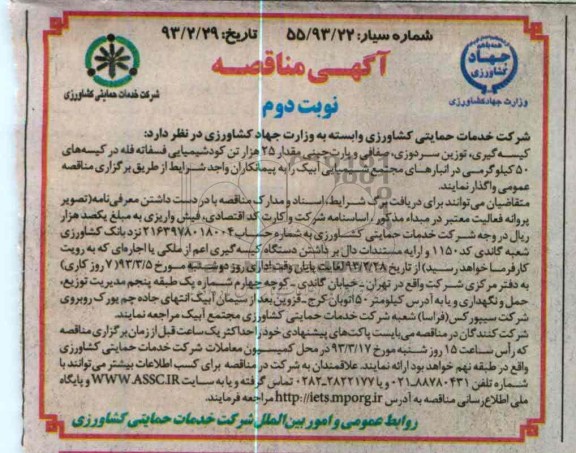 شماره سیار: ۵۵/۹۳/۲۲ تاریخ: ۹۳/۲/۲۹
جهاد کشاورزی
وزارت جهاد کشاورزی
شرکت خدمات حمایتی کشاورزی
آگهی مناقصه
نوبت دوم
شرکت خدمات حمایتی کشاورزی وابسته به وزارت جهاد کشاورزی در نظر دارد:
کیسه گیری، توزین سردوزی، صفافی و پارت چینی مقدار ۲۵ هزار تن کودشیمیایی فسفاته فله در کیسه‌های
۵۰ کیلوگرمی در انبارهای مجتمع شیمیایی آبیک را به پیمانکاران واجد شرایط از طریق برگزاری مناقصه
عمومی واگذار نمایند.
متقاضیان می‌توانند برای دریافت برگ شرایط، اسناد و مدارک مناقصه با در دست داشتن معرفی نامه (تصویر
پروانه فعالیت معتبر در مبداء مذکور، اساسنامه شرکت و کارت کد اقتصادی، فیش واریزی به مبلغ یکصد هزار
ریال در وجه شرکت خدمات حمایتی کشاورزی به شماره حساب ۲۱۶۳۹۷۸۰۱۸۰۰۴ نزد بانک کشاورزی
شعبه گاندی کد ۱۱۵۰ و ارایه مستندات دال بر داشتن دستگاه کیسه گیری اعم از ملکی یا اجاره‌ای که به رویت
کارفرما خواهد رسید) از تاریخ ۹۳/۲/۲۸ لغایت پایان وقت اداری روز دوشنبه مورخ ۹۳/۳/۵ (۷ روز کاری)
به دفتر مرکزی شرکت واقع در تهران - خیابان گاندی - کوچه چهارم شماره یک طبقه پنجم مدیریت توزیع،
حمل و نگهداری و یا به آدرس کیلومتر ۵۰ اتوبان کرج - قزوین بعد از سیمان آبیک انتهای جاده چم یورک روبروی
شرکت سیپورکس (فراسا) شعبه شرکت خدمات حمایتی کشاورزی مجتمع آبیک مراجعه نمایند.
شرکت کنندگان در مناقصه می‌بایست پاکت‌های پیشنهادی خود را حداکثر یک ساعت قبل از زمان برگزاری مناقصه
که رأس ساعت ۱۵ روز شنبه مورخ ۹۳/۳/۱۷ در محل کمیسیون معاملات شرکت خدمات حمایتی کشاورزی
واقع در طبقه نهم خواهد بود ارائه نمایند. علاقمندان به شرکت در مناقصه برای کسب اطلاعات بیشتر می‌توانند با
شماره تلفن ۸۸۷۸۰۴۳۱-۰۲۱ و یا ۲۸۲۲۱۷۷-۰۲۸۲ تماس گرفته و یا به سایت WWW.ASSC.IR و پایگاه
ملی اطلاع رسانی مناقصه به آدرس http://iets.mporg.ir مراجعه فرمایند.
روابط عمومی و امور بین الملل شرکت خدمات حمایتی کشاورزی